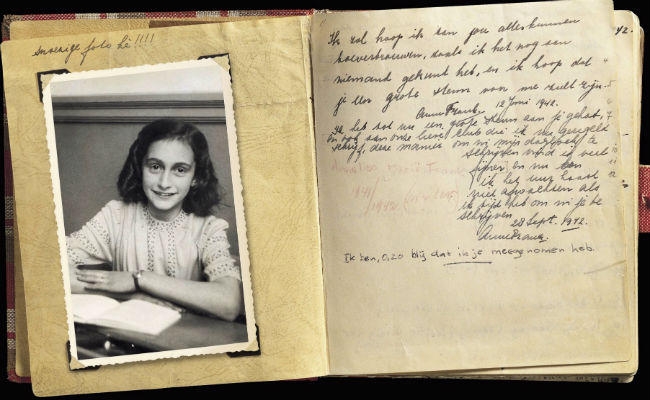 snoezige foto hè!!!!
Ik zal hoop ik aan jou alles kunnen
toevertrouwen, zoals ik het nog aan
niemand gekunt heb, en ik hoop dat
je een grote steun voor me zult zijn.
Anne Frank. 12 Juni 1942.
Ik heb tot nu een grote steun aan je gehad,
en ook aan onze lieve club die ik nu geregeld
schrijf, deze manier om in mijn dagboek te
schrijven vind ik veel
fijner en nu kan
ik het uur haast
niet afwachten als
ik tijd heb om in je te
schrijven
28 Sept. 1942.
Anne Frank.
Ik ben, O, zo blij dat ik je meegenomen heb.
42.